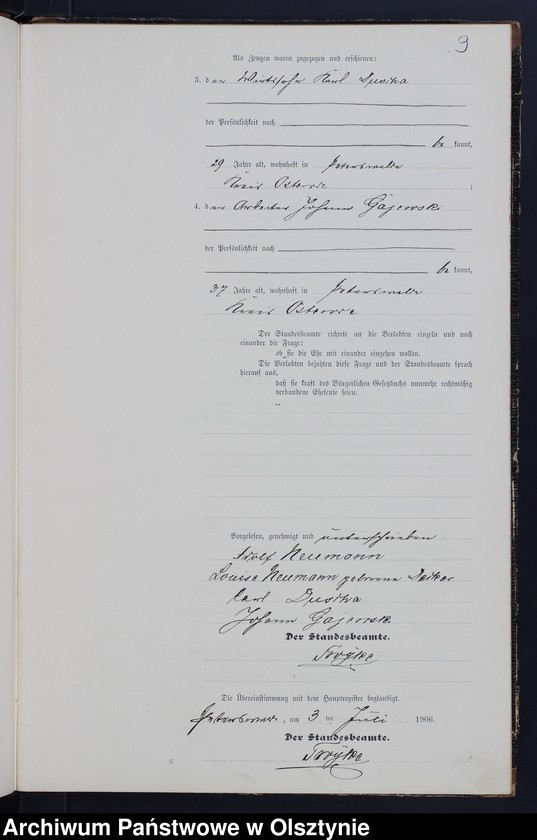 9
Als Zeugen waren zugezogen und erschienen:
3. der Wirtssohn Karl Dusika
der Persönlichkeit nach
be kannt,
29 Jahre alt, wohnhaft in Peterswalde
Kreis Osterode ;
4. der Arbeiter Johann Gajewski
der Persönlichkeit nach
be kannt,
37 Jahre alt, wohnhaft in Peterswalde
Kreis Osterode
Der Standesbeamte richtete an die Verlobten einzeln und nach
einander die Frage:
ob sie die Ehe mit einander eingehen wollen.
Die Verlobten bejahten diese Frage und der Standesbeamte sprach
hierauf aus,
daß sie kraft des Bürgerlichen Gesetzbuchs nunmehr rechtmäßig
verbundene Eheleute seien.
Vorgelesen, genehmigt und unterschrieben
Adolf Neumann
Louise Neumann geborene
Carl Dusika
Johann Gajewski
Der Standesbeamte.
Die Übereinstimmung mit dem Hauptregister beglaubigt.
Peterswalde, am 3 ten Juli 1906.
Der Standesbeamte.
Archiwum Państwowe w Olsztynie